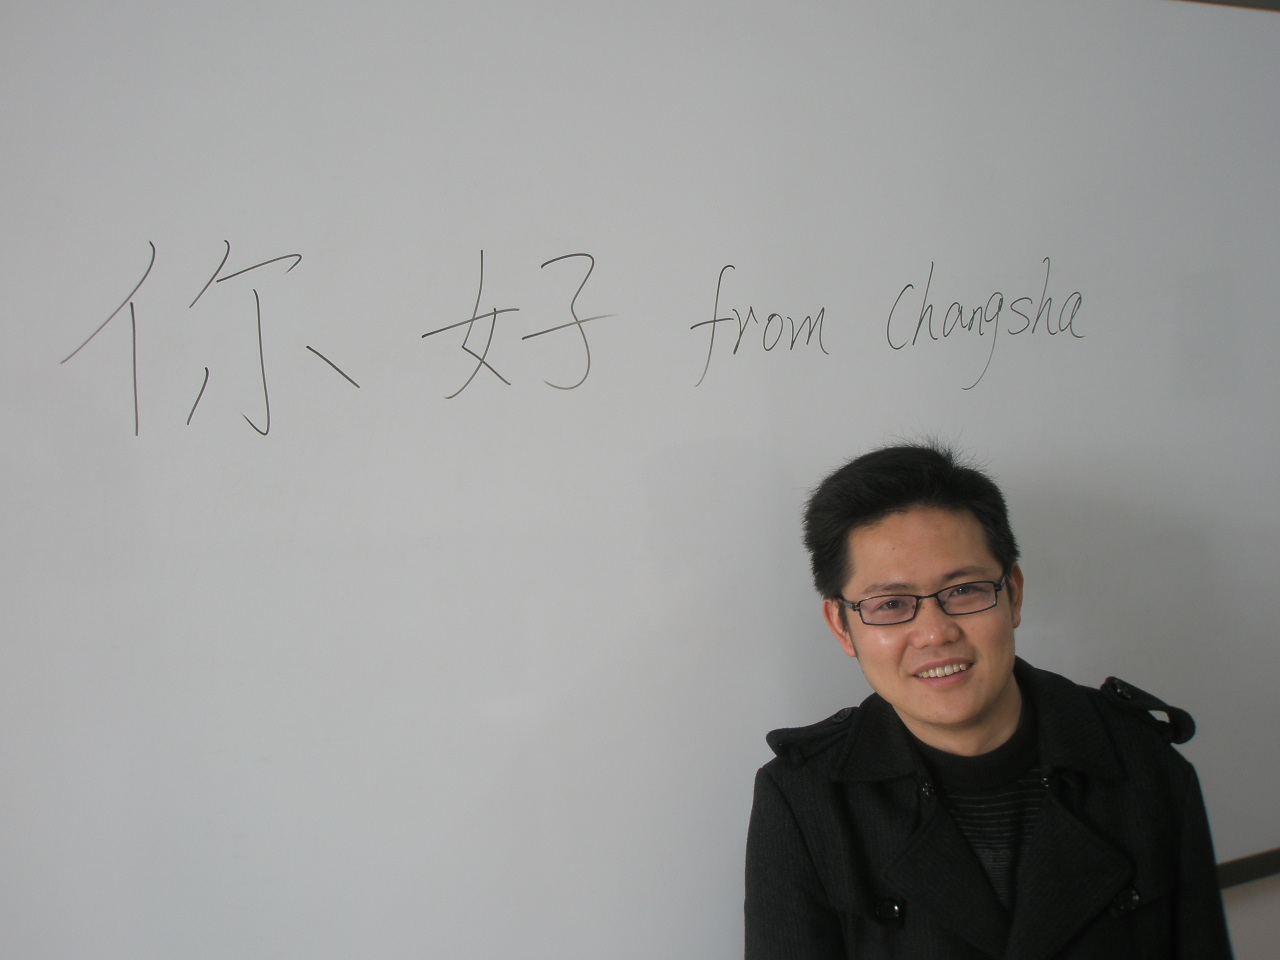 你好 from Changsha